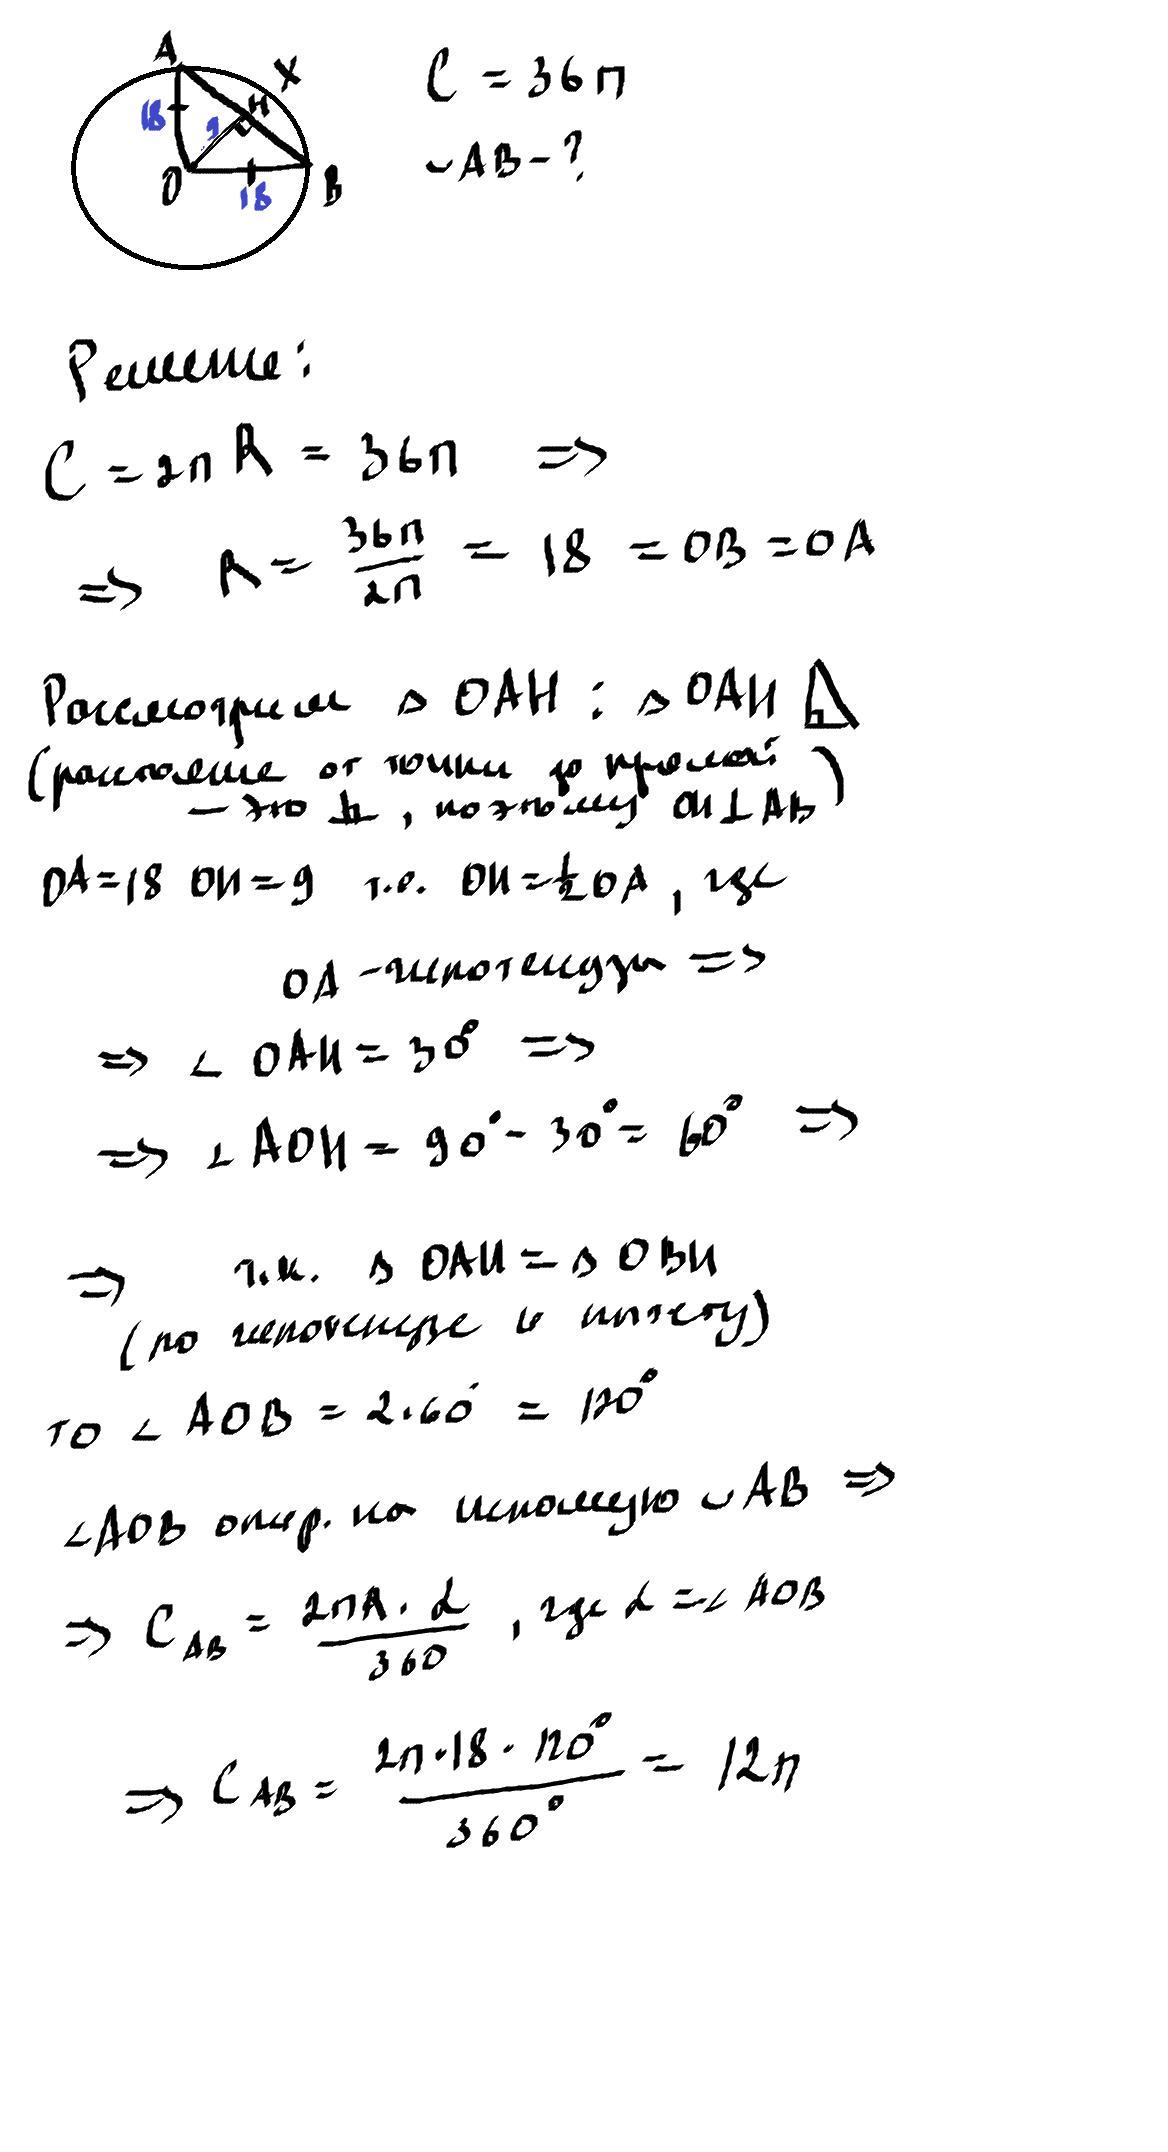 A
X
H
18
9
O
18
B
C = 36π
◡AB - ?
Решение:
C = 2π R = 36π ⇒
⇒ R = 36π/2π = 18 = OB = OA
Рассмотрим △ OAH : △ OAH ◺
(расстояние от точки до прямой
— это ⊥, поэтому OH ⊥ AB)
OA = 18 OH = 9 т.е. OH = 1/2 OA, где
OA - гипотенуза ⇒
⇒ ∠ OAH = 30° ⇒
⇒ ∠ AOH = 90° - 30° = 60° ⇒
⇒ т.к. △ OAH = △ OBH
(по гипотенузе и катету)
то ∠ AOB = 2·60° = 120°
∠AOB опир. на искомую ◡ AB ⇒
⇒ C_AB = 2πR · α/360, где α = ∠ AOB
⇒ C_AB = 2π·18·120°/360° = 12π